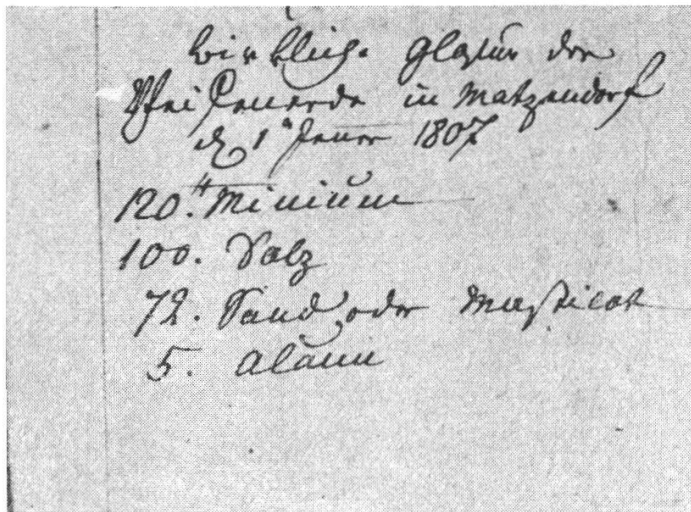 Wirkliche Glasur der
Pfeifenerde in Matzendorf
d 1ᵗ Jener 1807
120.℔ Minium
100. Salz
72. Sand oder Masticot
5. Alaun